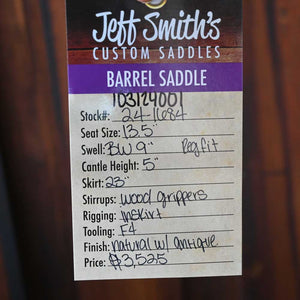 Jeff Smith's
CUSTOM SADDLES
BARREL SADDLE
103124001
Stock#: 24-1684
Seat Size: 13.5"
Swell: BW 9" Reg.fit
Cantle Height: 5"
Skirt: 23"
Stirrups: wood grippers
Rigging: Inskirt
Tooling: F4
Finish: natural w/ antique
Price: $3,525